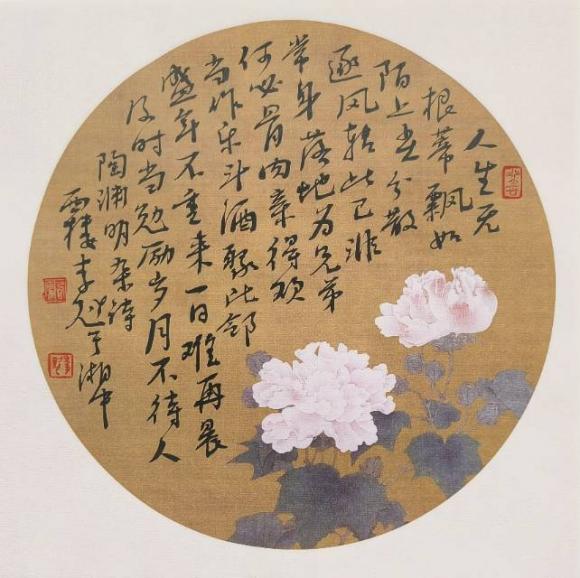 人生无
根蒂飘如
陌上尘分散
逐风转此已非
常身落地为兄弟
何必骨肉亲得欢
当作乐斗酒聚比邻
盛年不重来一日难再晨
及时当勉励岁月不待人
陶渊明杂诗
李于湘中